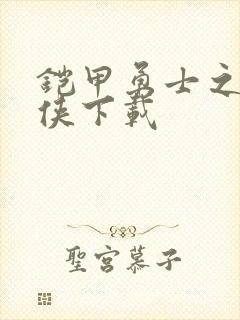 铠甲勇士之
侠下载
聖宮慕子